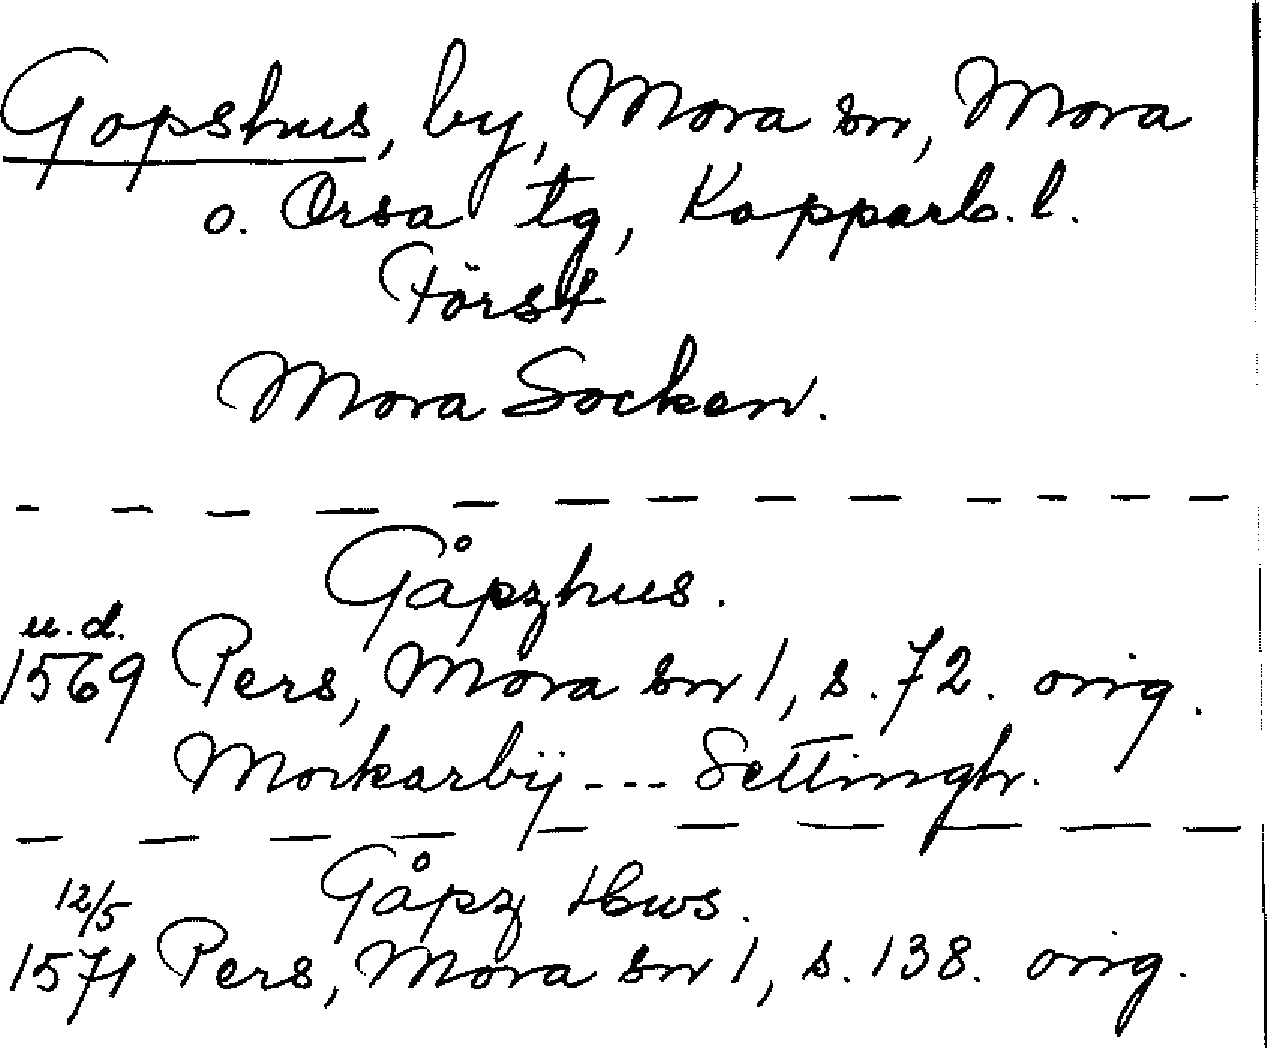 Gopshus, by, Mora sn, Mora
o. Orsa tg, Kopparb. l.
Först
Mora Socken.
Gåpzhus.
u.d.
1569 Pers, Mora sn 1, s. 72. orig.
Morkarbÿ --- Settingh.
Gåpz Hws.
12/5
1571 Pers, Mora sn 1, s. 138. orig.